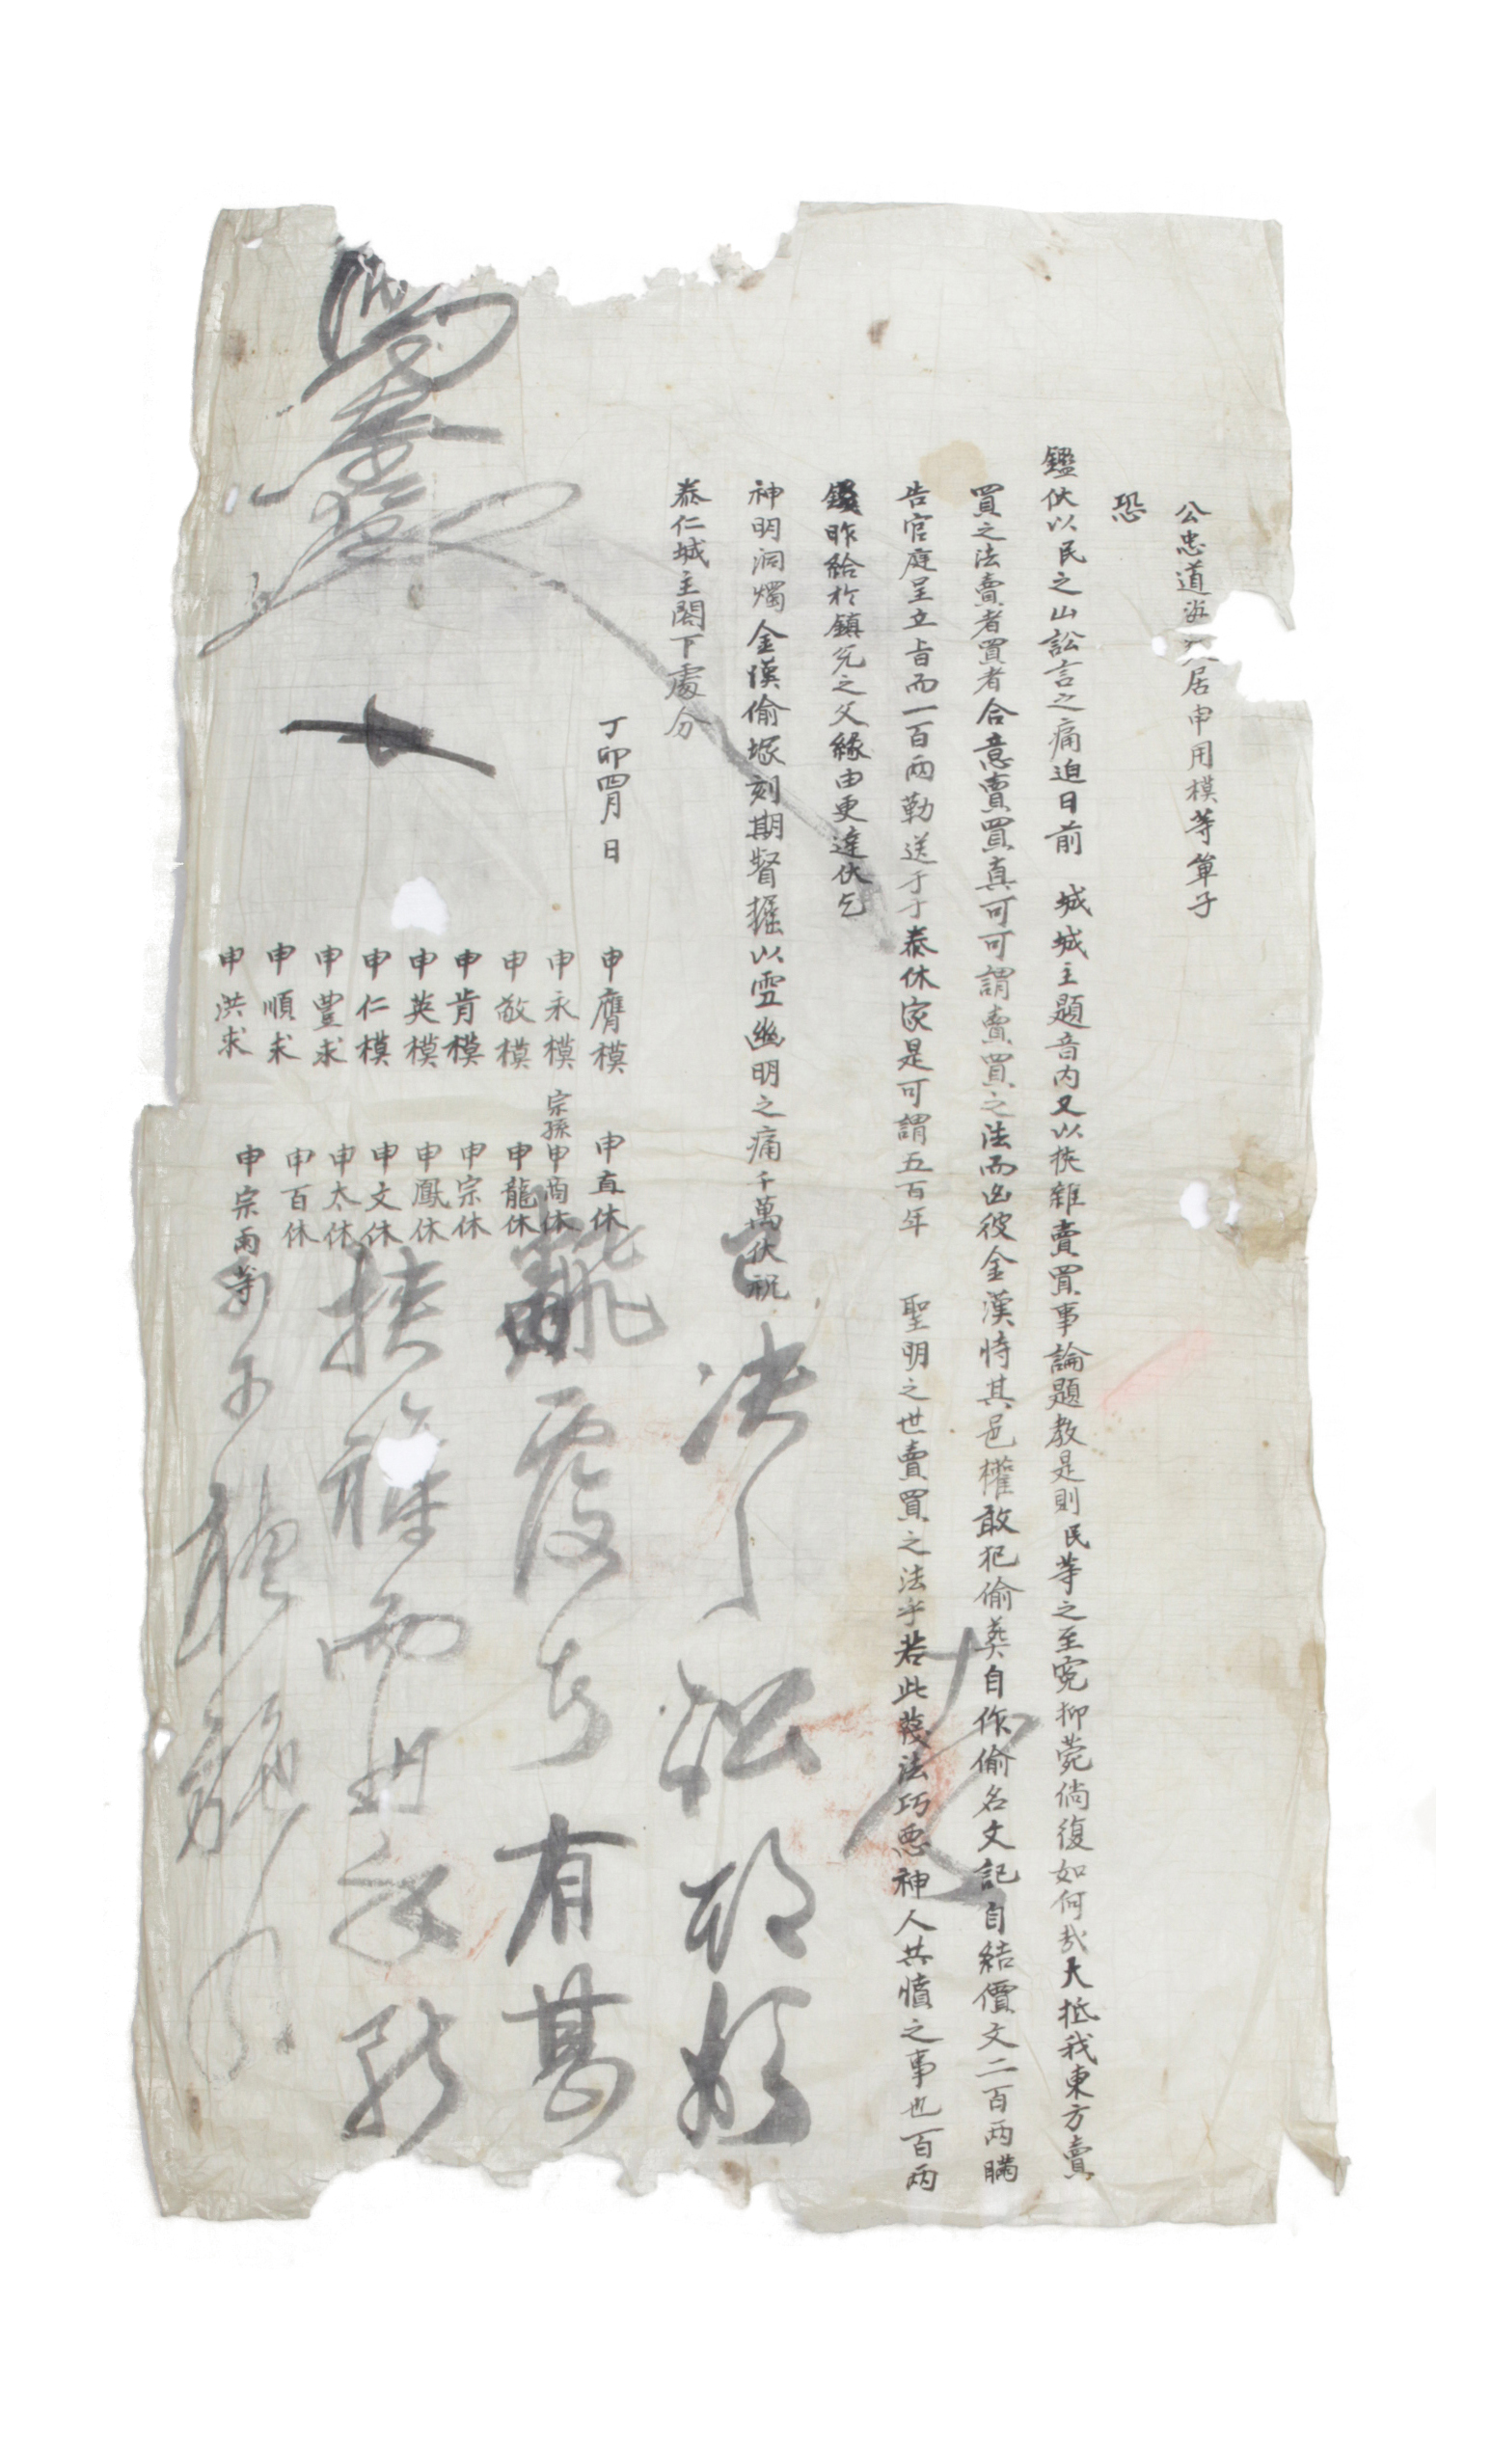 公忠道 居申用模等單子
恐
鑑伏以民之山訟言之痛迫日前 城城主題音內又以挾雜賣買事論題敎是則民等之至寃抑菀倘復如何哉大抵我東方賣
買之法賣者買者合意賣買真可可謂賣買之法而凶彼金漢恃其邑權敢犯偷葬自作偷名文記自結價文二百兩瞞
告官庭呈立旨而一百兩勒送于于泰休家是可謂五百年 聖明之世賣買之法乎若此蔑法巧惡神人共憤之事也百兩
錢昨給於鎭允之父緣由更達伏乞
神明洞燭金漢偷塚刻期督掘以雪幽明之痛千萬伏祝
泰仁城主閤下處分
丁卯四月 日
申膺模 申直休
申永模 宗孫申商休
申敬模 申龍休
申肯模 申宗休
申英模 申鳳休
申仁模 申文休
申豊求 申太休
申順求 申百休
申洪求 申宗雨等
決 訟
飜覆 有甚
挾雜而